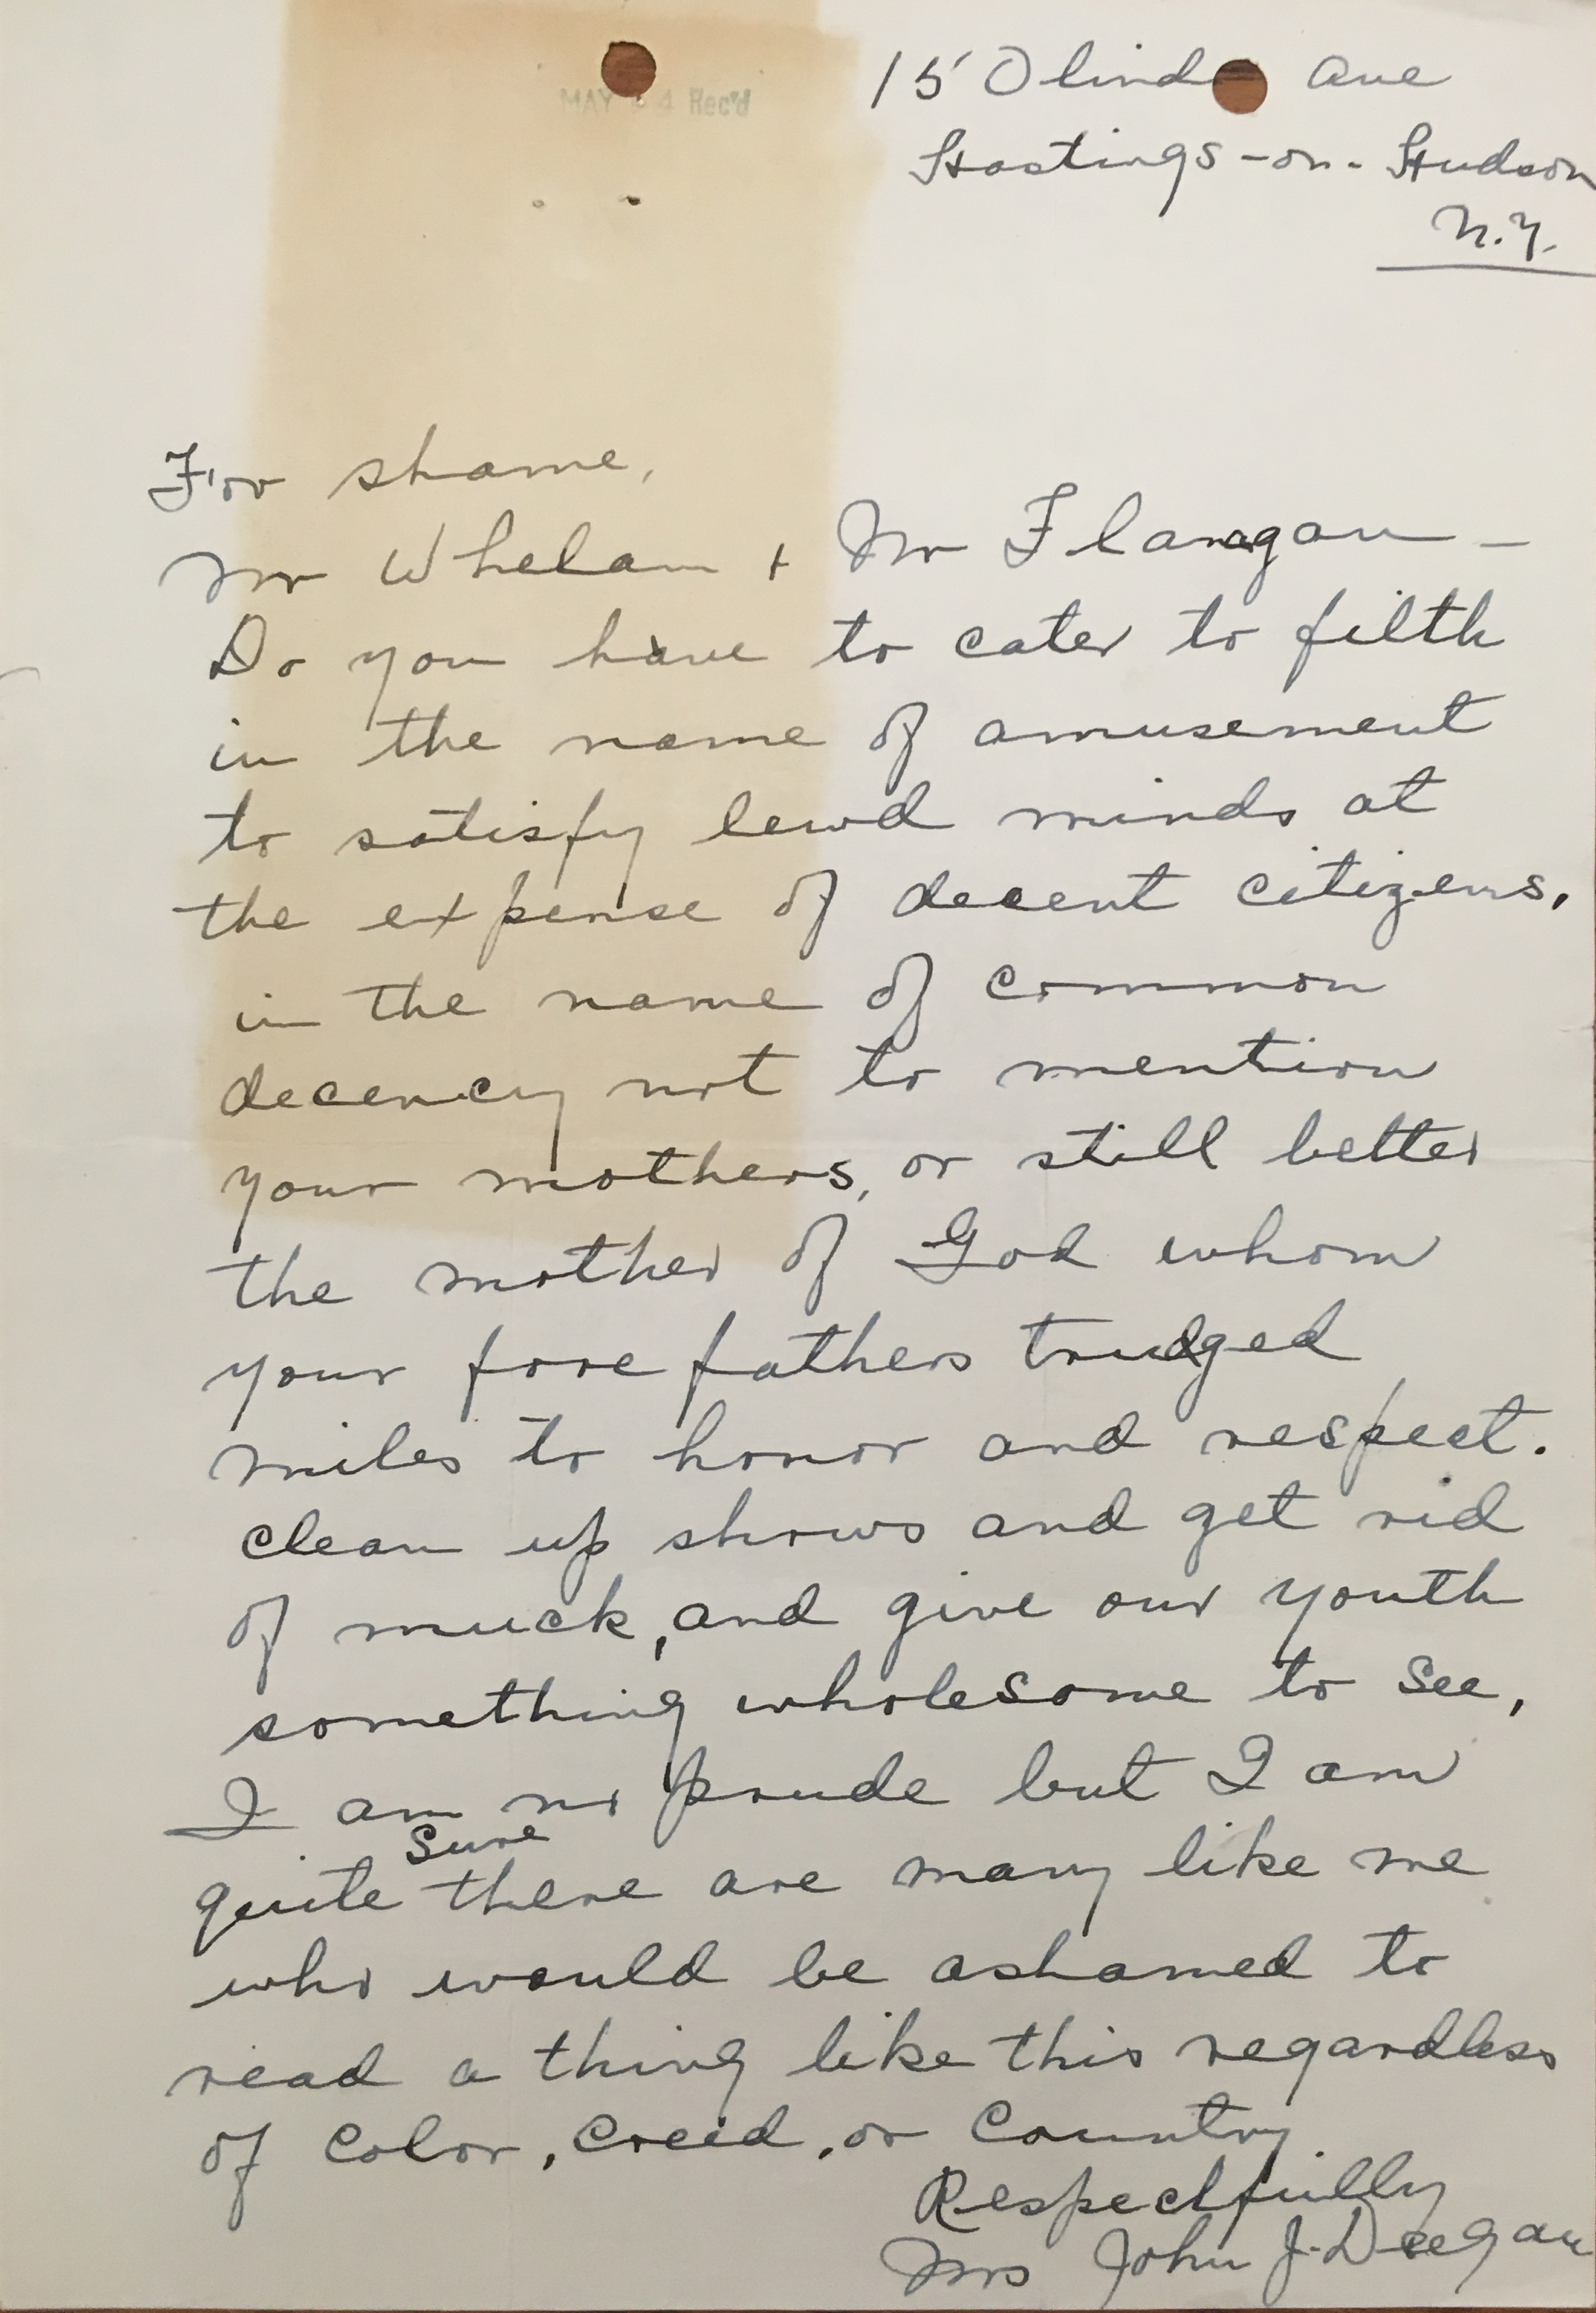 MAY 4 Rec'd
15 Olinda Ave
Hastings-on-Hudson
N.Y.
For shame,
Mr Whelan + Mr Flanagan -
Do you have to cater to filth
in the name of amusement
to satisfy lewd minds at
the expense of decent citizens,
in the name of common
decency not to mention
your mothers, or still better
the mother of God whom
your fore fathers trudged
miles to honor and respect.
clean up shows and get rid
of muck, and give our youth
something wholesome to see,
I am no prude but I am
quite sure there are many like me
who would be ashamed to
read a thing like this regardless
of color, creed, or country.
Respectfully
Mrs John J. Deegan